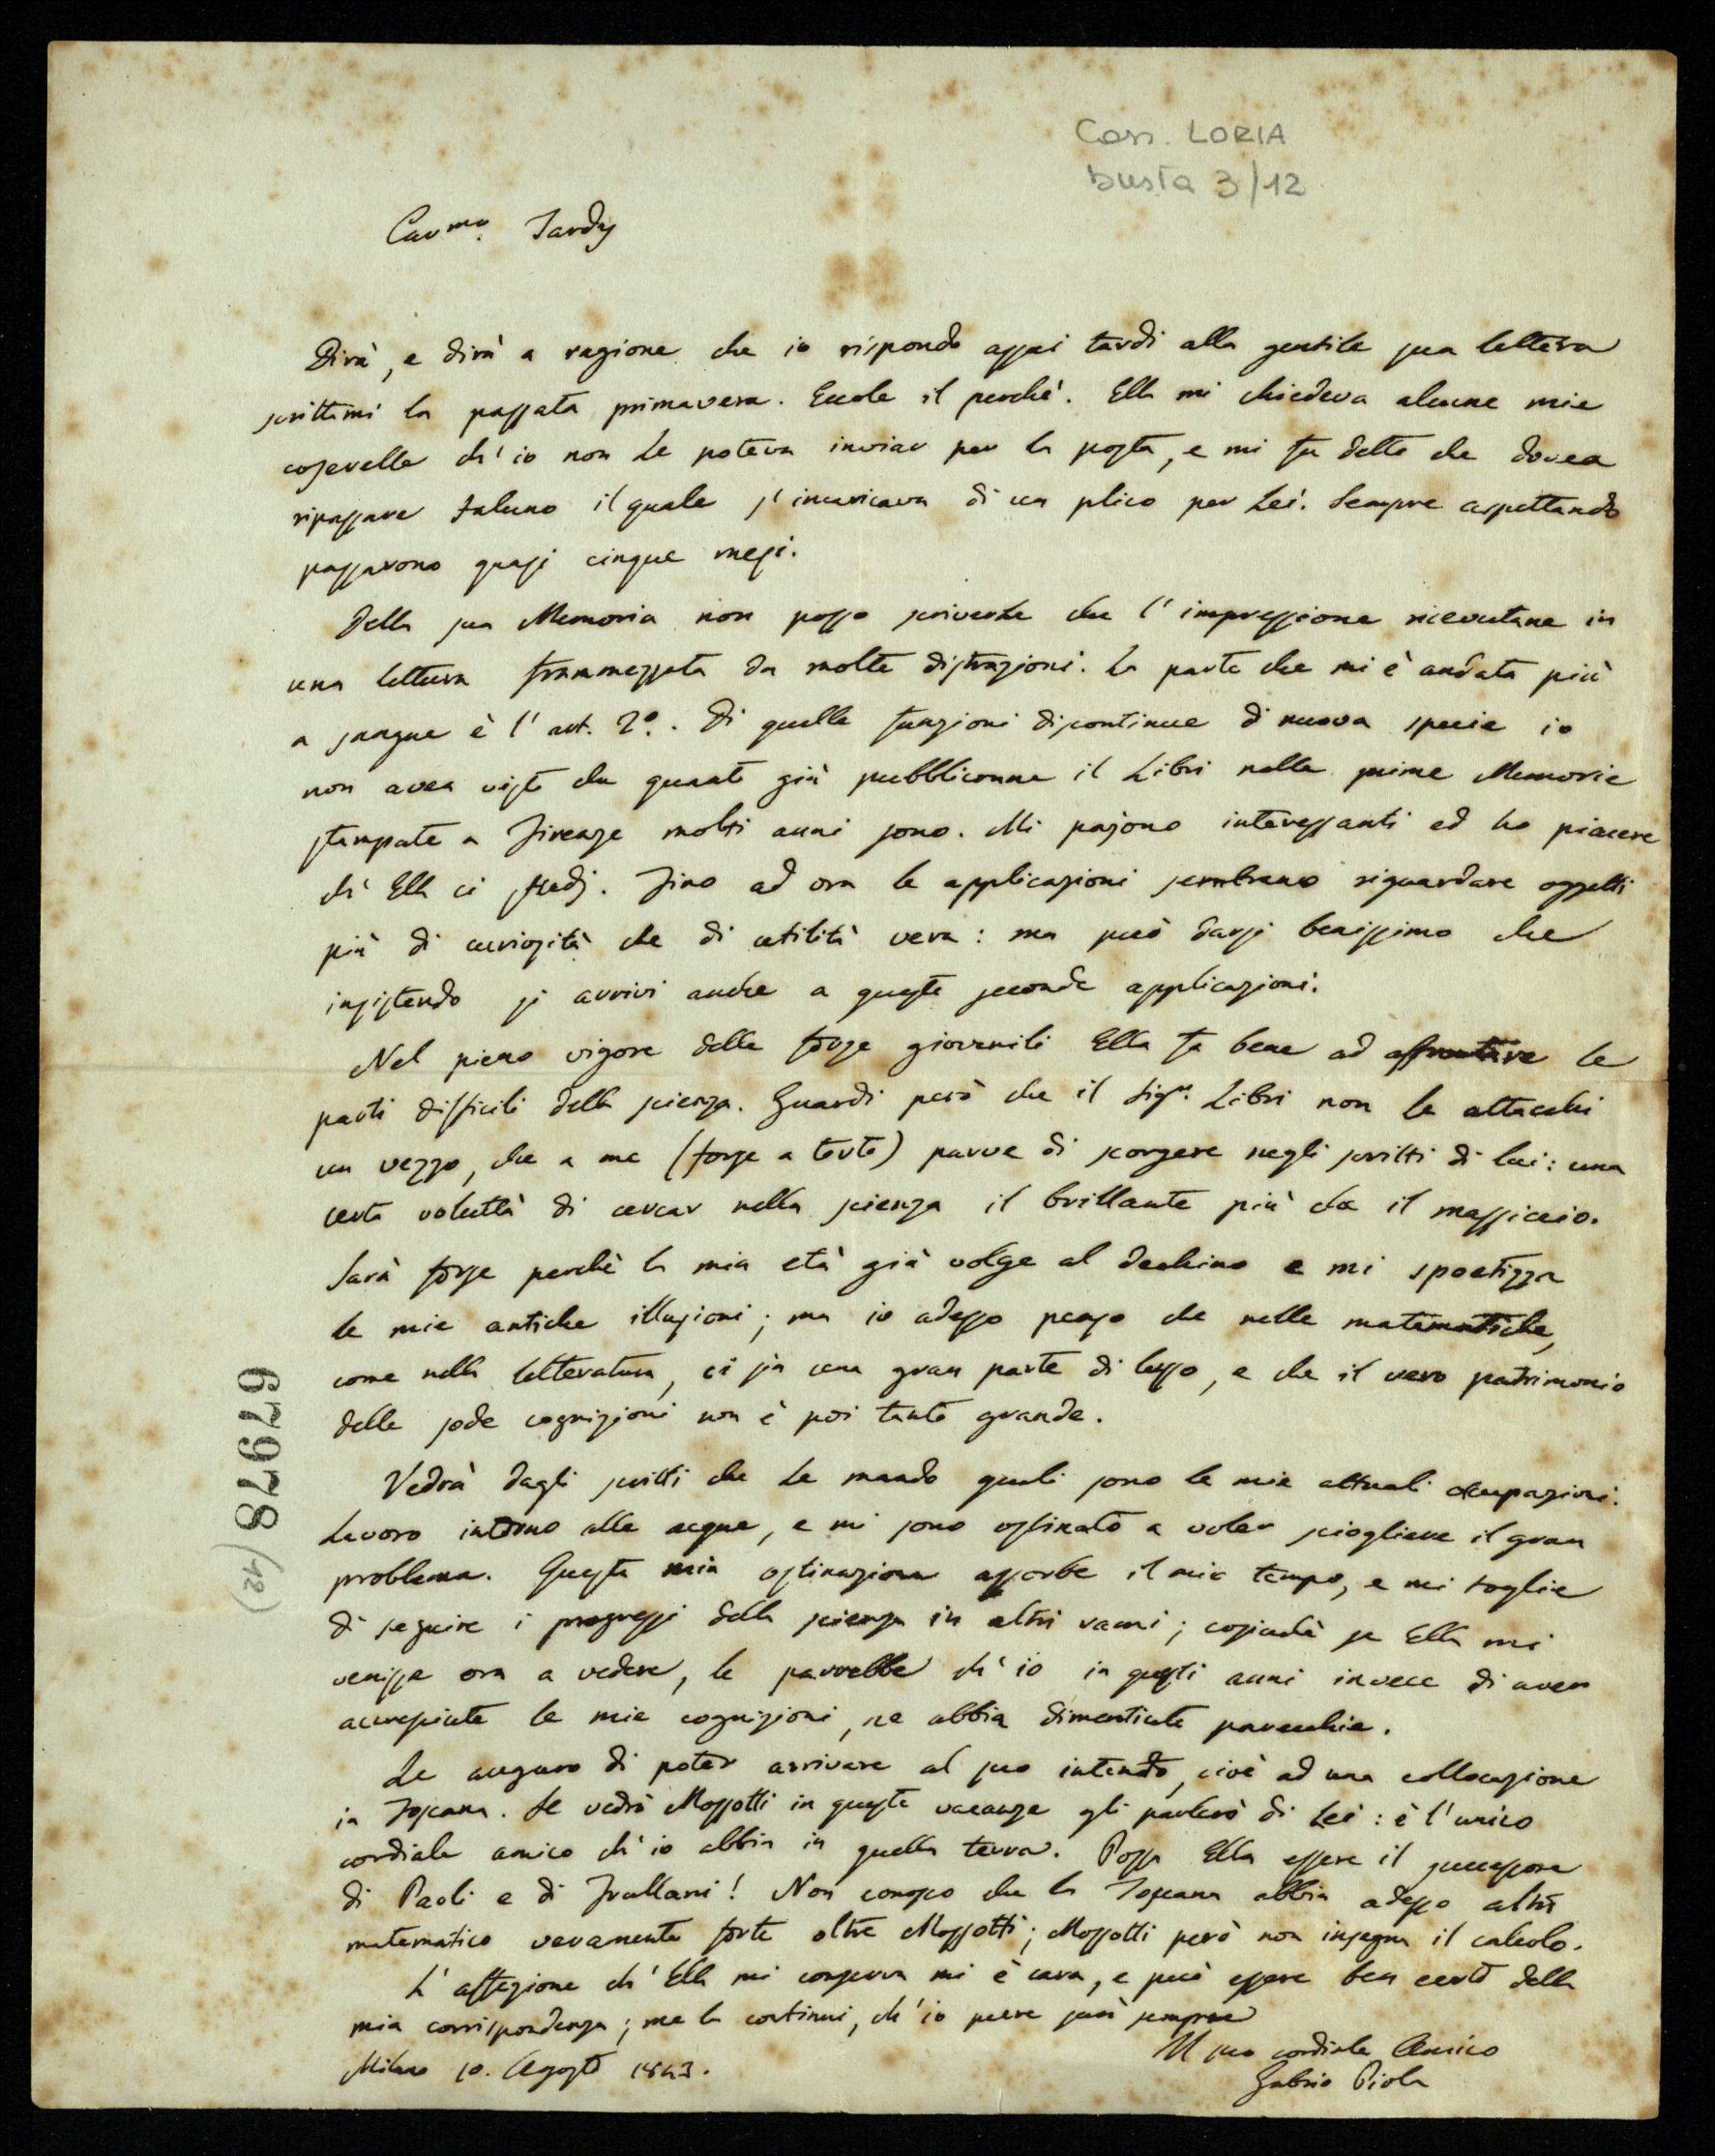 Corr. LORIA
busta 3/12
Carmo. Tardy
Dirà, e dirà a ragione che io rispondo assai tardi alla gentile sua lettera
scrittami la passata primavera. Eccole il perchè. Ella mi chiedeva alcune mie
coserelle ch'io non Le poteva inviar per la posta, e mi fu detto che dovea
ripassare taluno il quale s'incaricava di un plico per Lei. Sempre aspettando
passarono quasi cinque mesi.
Della sua Memoria non posso scriverLe che l'impressione ricevutane in
una lettura frammezzata da molte distrazioni. La parte che mi è andata più
a sangue è l'art. 2º. Di quelle funzioni discontinue di nuova specie io
non avea visto che quanto già pubbliconne il Libri nelle prime Memorie
stampate a Firenze molti anni sono. Mi pajono interessanti ed ho piacere
ch'Ella ci studj. Fino ad ora le applicazioni sembrano riguardare oggetti
più di curiosità che di utilità vera: ma può darsi benissimo che
insistendo si arrivi anche a queste seconde applicazioni.
Nel pieno vigore delle forze giovanili Ella fa bene ad affrontare le
parti difficili della scienza. Guardi però che il Sigr. Libri non le attacchi
un vezzo, che a me (forse a torto) parve di scorgere negli scritti di lui: una
certa voluttà di cercar nella scienza il brillante più che il massiccio.
Sarà forse perchè la mia età già volge al declino e mi spoetizza
le mie antiche illusioni; ma io adesso penso che nelle matematiche,
come nella letteratura, ci sia una gran parte di lusso, e che il vero patrimonio
delle sode cognizioni non è poi tanto grande.
Vedrà dagli scritti che Le mando quali sono le mie attuali occupazioni.
Lavoro intorno alle acque, e mi sono ostinato a voler sciogliere il gran
problema. Questa mia ostinazione assorbe il mio tempo, e mi toglie
di seguire i progressi della scienza in altri rami; cosicchè se Ella mi
venisse ora a vedere, le parrebbe ch'io in questi anni invece di aver
accresciute le mie cognizioni, ne abbia dimenticate parecchie.
Le auguro di poter arrivare al suo intento, cioè ad una collocazione
in Toscana. Se vedrò Mossotti in queste vacanze gli parlerò di Lei: è l'unico
cordiale amico ch'io abbia in quella terra. Possa Ella essere il successore
di Paoli e di Frullani! Non conosco che la Toscana abbia adesso altro
matematico veramente forte oltre Mossotti; Mossotti però non insegna il calcolo.
L'affezione ch'Ella mi conserva mi è cara, e può essere ben certo della
mia corrispondenza; me la continui, ch'io pure sarò sempre
Il suo cordiale Amico
Milano 10. Agosto 1843.
Gabrio Piola
679278
(12)